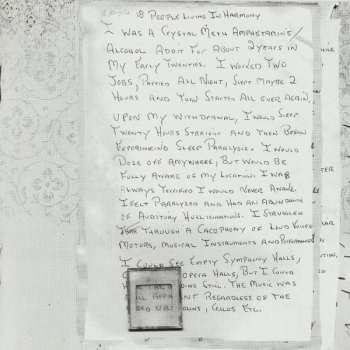 8 People Living In Harmony
I was a Crystal Meth Amphetamine/
Alcohol Addit For about 2 years in
My Early Twenties. I worked Two
Jobs, Partied All Night, Slept Maybe 2
Hours and Then Started All over Again.
Upon My Withdrawal, I would Sleep
Twenty Hours Straight and Then Began
Experiencing Sleep Paralysis. I would
Doze off Anywhere, But would Be
Fully Aware of My Location. I was
Always Terrified I would Never Awake.
I felt Paralyzed and Had an Abundance
of Auditory Hullicinations. I Struggled
Through A Cacophony of Loud Voices
Motors, Musical Instruments and
I Could See Empty Symphony Halls,
Opera Halls, But I Could
Still. The Music was
Regardless of the
Cellos Etc.